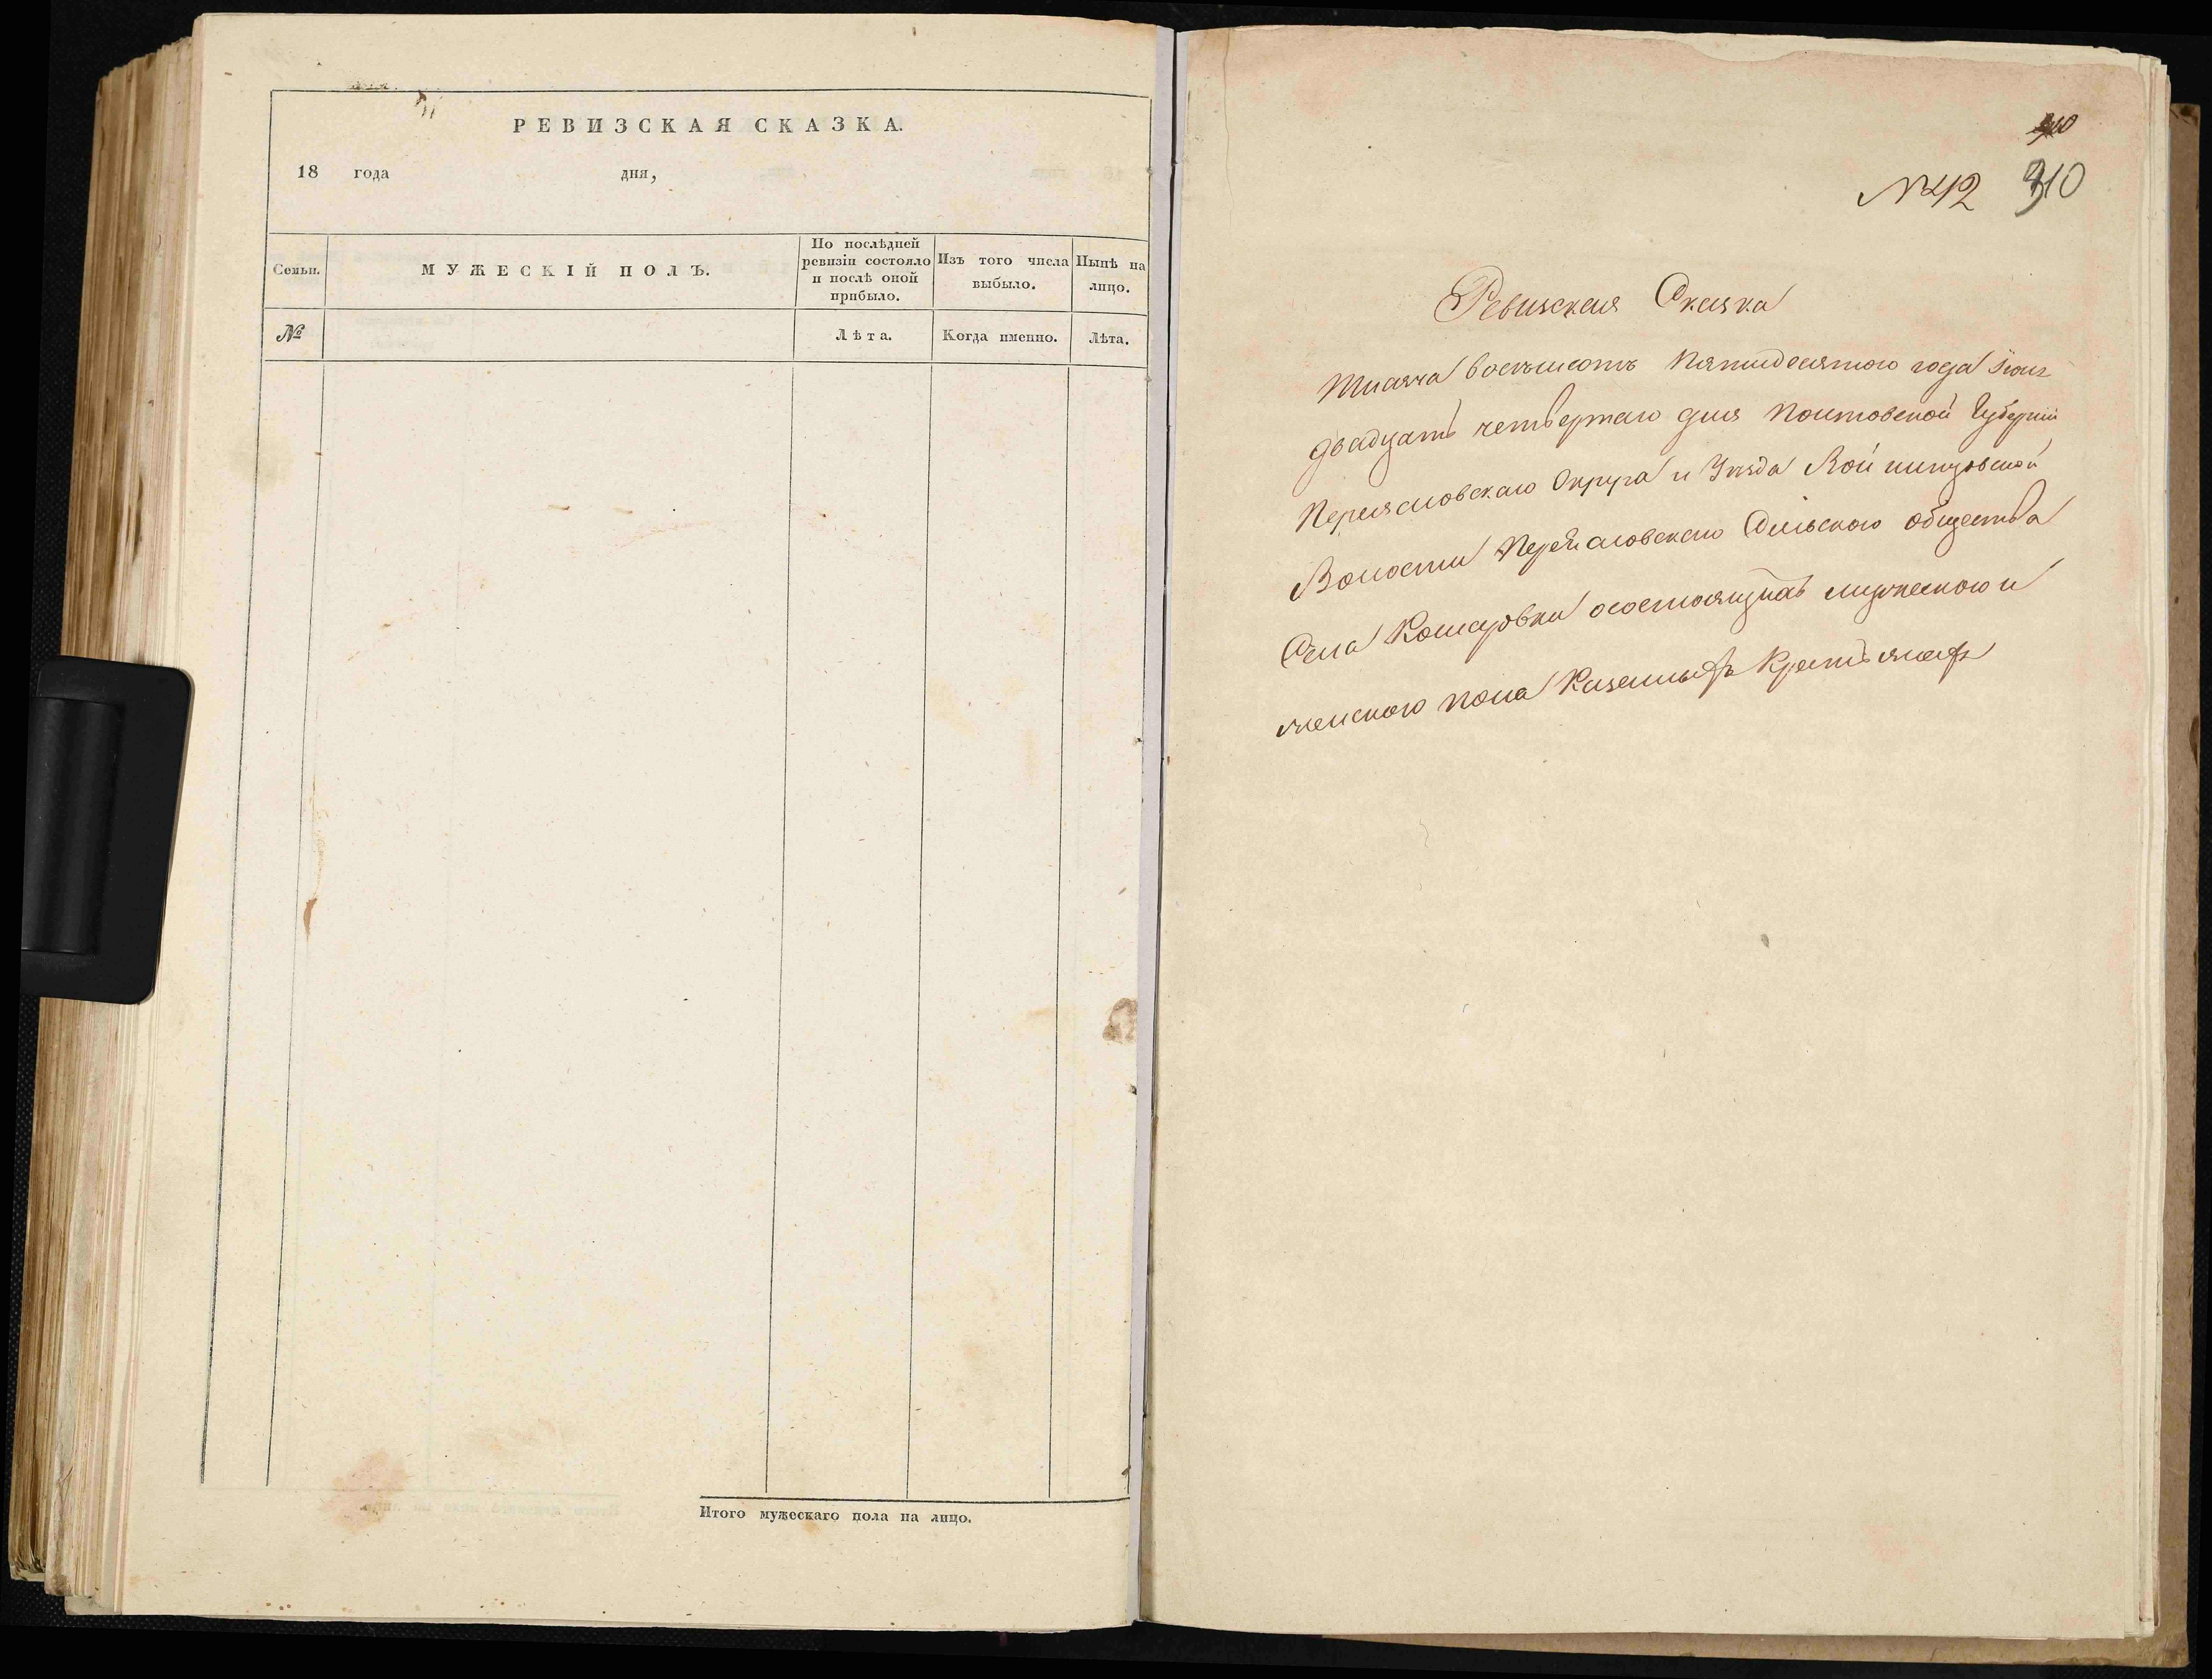 РЕВИЗСКАЯ СКАЗКА.
18 года дня,
Семьи.
МУЖЕСКІЙ ПОЛЪ.
По послѣдней
ревизіи состояло
и послѣ оной
прибыло.
Изъ того числа
выбыло.
Нынѣ на
лицо.
№
Лѣта.
Когда именно.
Лѣта.
Итого мужескаго пола на лицо.
310
№ 42
Ревизская Сказка
Тисяча восемьсотъ пятидесятого года
двадцать четвертаго дня Полтовской Губерніи
Переясловскаго Округа и Уезда
Волости Переясловскаго Сельского общества
Села Комаровки осостоящихъ мужеского и
женского пола Казенныхъ Крестьянахъ